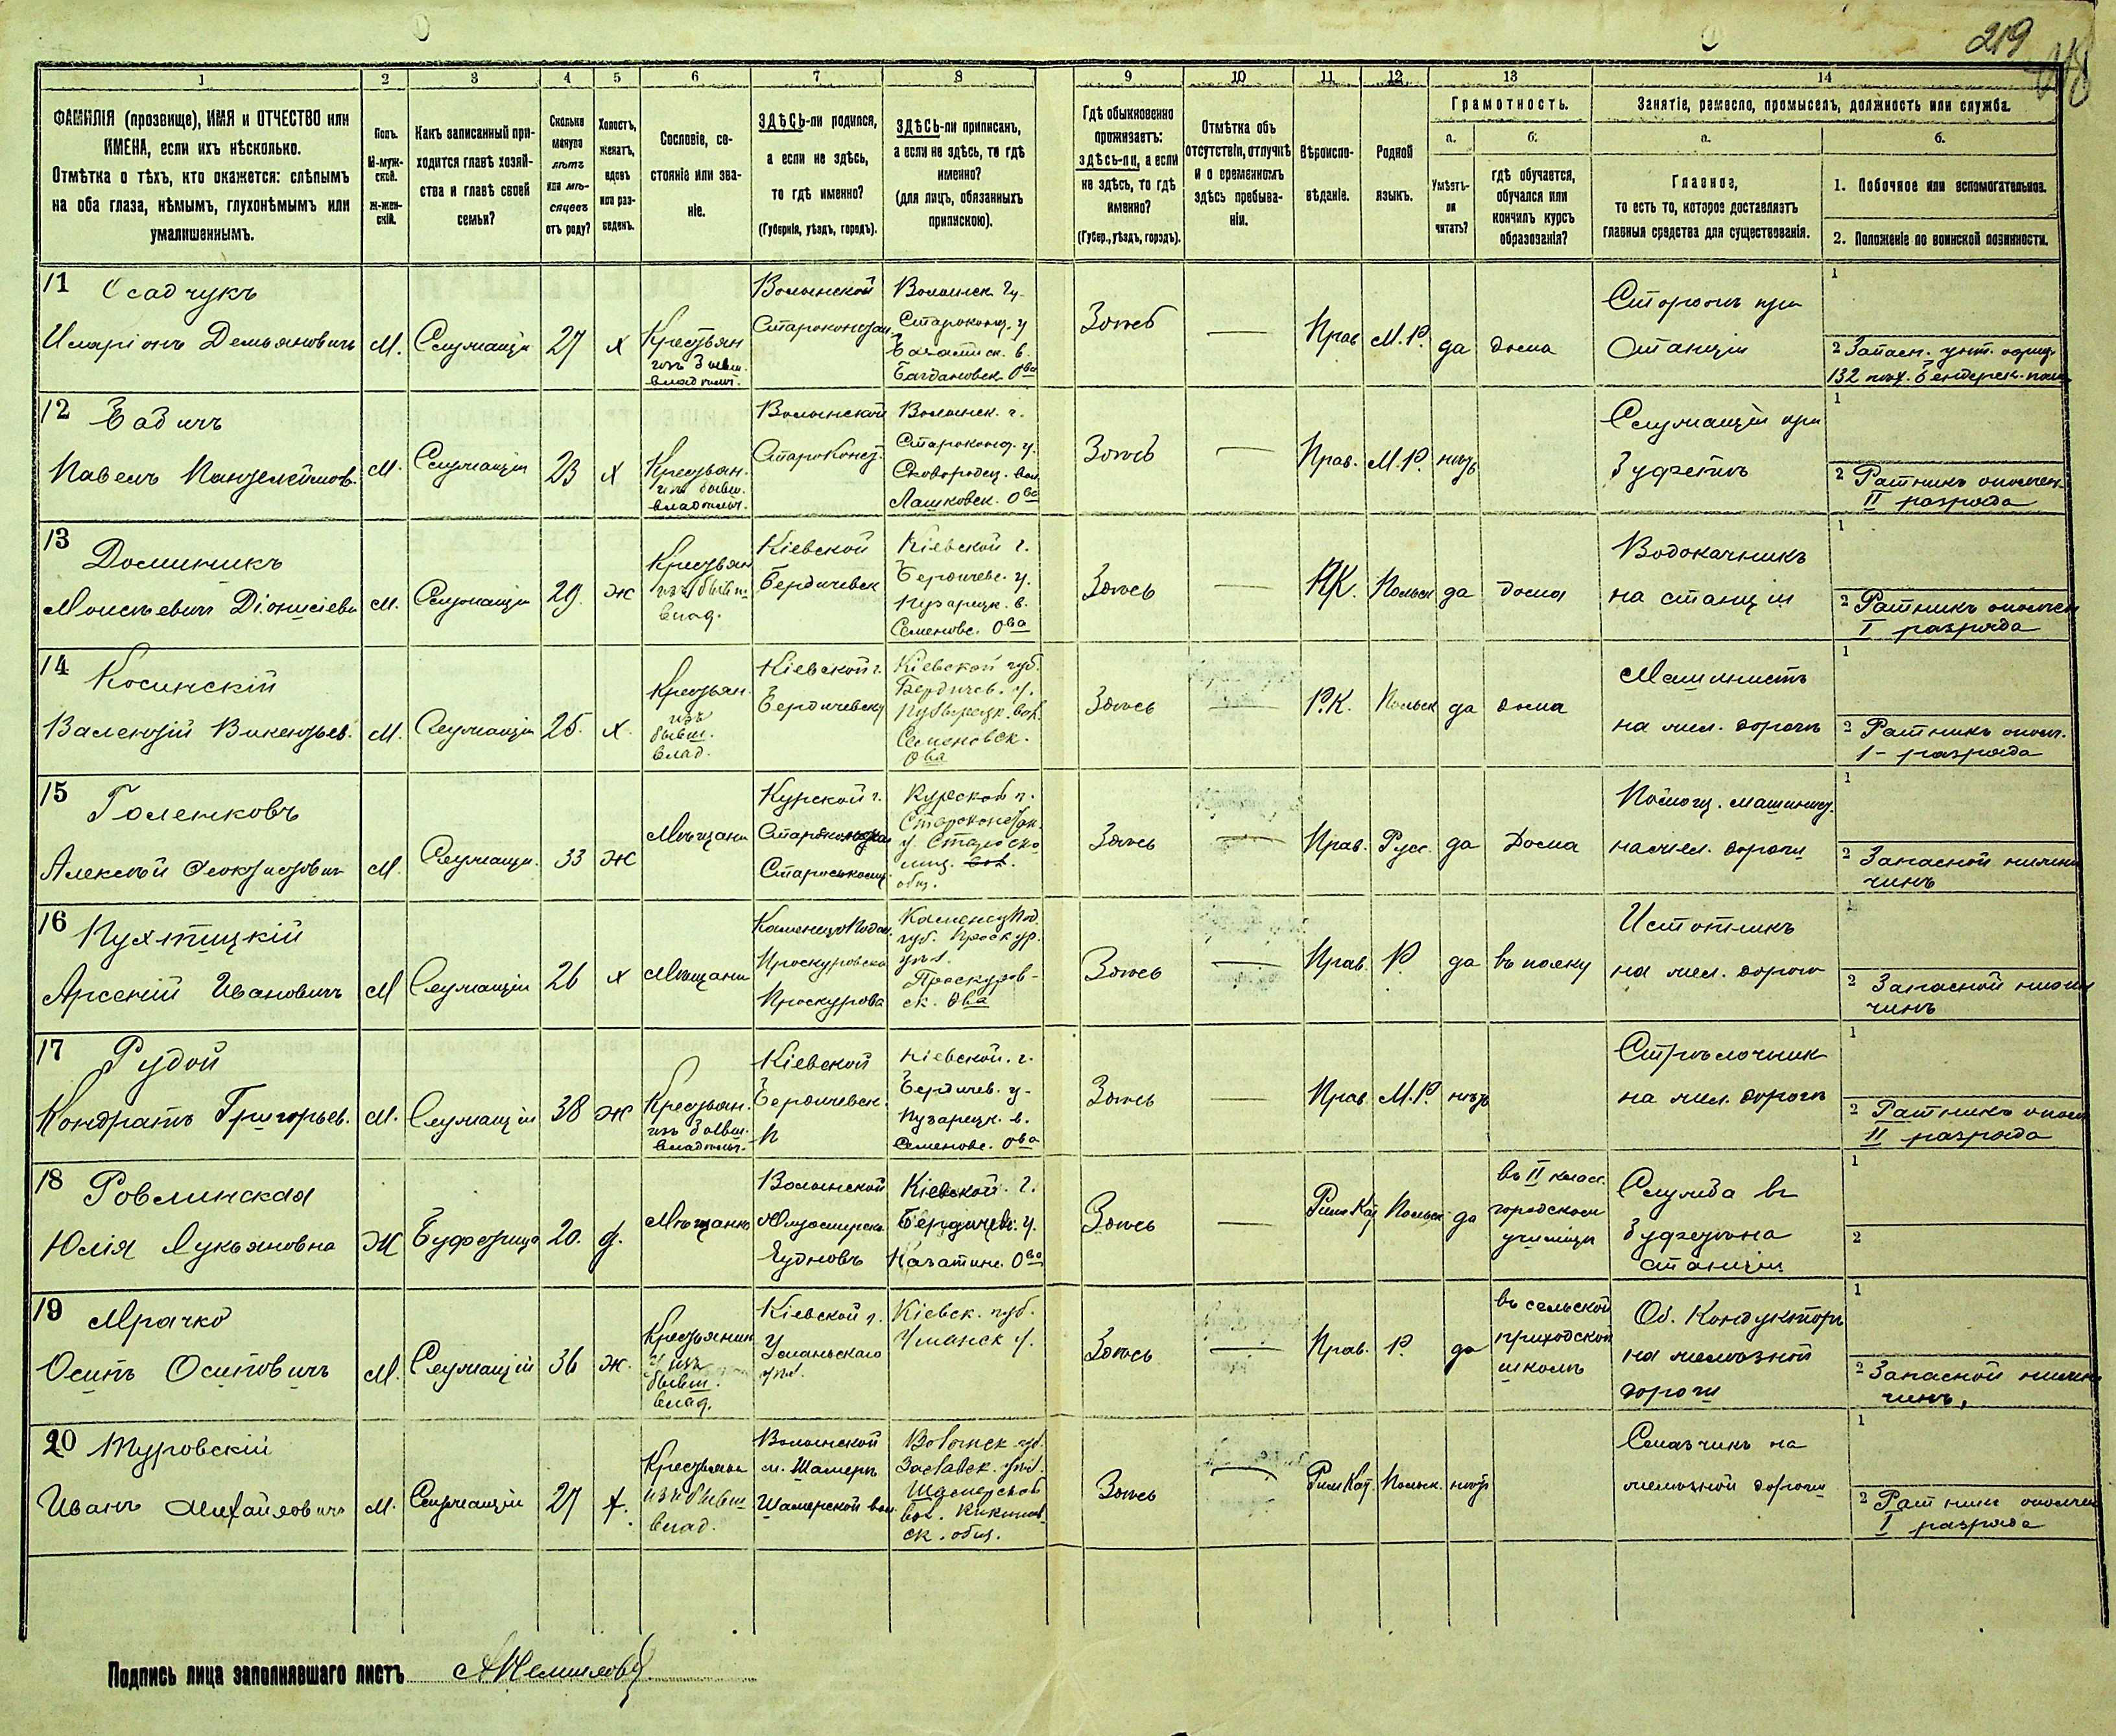 219
1 2 3 4 5 6 7 8 9 10 11 12 13 14
ФАМИЛІЯ (прозвище), ИМЯ и ОТЧЕСТВО или
ИМЕНА, если ихъ нѣсколько.
Отмѣтка о тѣхъ, кто окажется: слѣпымъ
на оба глаза, нѣмымъ, глухонѣмымъ или
умалишеннымъ.
Полъ.
М-муж-
ской.
Ж-жен-
скій.
Какъ записанный при-
ходится главѣ хозяй-
ства и главѣ своей
семьи?
Сколько
минуло
лѣтъ
или мѣ-
сяцевъ
отъ роду?
Холостъ,
женатъ,
вдовъ
или раз-
веденъ.
Сословіе, со-
стояніе или зва-
ніе.
ЗДѢСЬ-ли родился,
а если не здѣсь,
то гдѣ именно?
(Губернія, уѣздъ, городъ).
ЗДѢСЬ-ли приписанъ,
а если не здѣсь, то гдѣ
именно?
(для лицъ, обязанныхъ
припискою).
Гдѣ обыкновенно
проживаетъ:
здѣсь-ли, а если
не здѣсь, то гдѣ
именно?
(Губер., уѣздъ, городъ).
Отмѣтка объ
отсутствіи, отлучкѣ
и о временномъ
здѣсь пребыва-
ніи.
Вѣроиспо-
вѣданіе.
Родной
языкъ.
Грамотность.
а.
Умѣетъ-
ли
читать?
б.
гдѣ обучается,
обучался или
кончилъ курсъ
образованія?
Занятіе, ремесло, промыселъ, должность или служба.
а.
Главное,
то есть то, которое доставляетъ
главныя средства для существованія.
б.
1. Побочное или вспомогательное.
2. Положеніе по воинской повинности.
11 Осадчукъ
Иларіонъ Демьяновичъ
М.
Служащій
27
х
Крестьян
изъ бывш.
владѣльч.
Волынской
Староконстан.
Волынск. Гу.
Староконст. у
Богдановск. Ова
Здѣсь
—
Прав
М.Р.
да
дома
Сторожъ при
Станціи
1
2 Запасн. унт. офиц.
132 пѣх. Бендерск. полк.
12 Бабичъ
Павелъ Пантелеймов.
М.
Служащій
23
х
Крестьян.
изъ бывш.
владѣльч.
Волынской
Староконст.
Волынск. г.
Староконст. у.
Сковородец. вол.
Лашковск. Ова
Здѣсь
—
Прав.
М.Р.
нѣтъ
Служащій при
буфетѣ
1
2 Ратникъ ополчен.
II разряда
13 Доминикъ
Моисѣевич Діонисіевъ
М.
Служащій
29.
ж
Крестьян
изъ бывш
влад.
Кіевской
Бердичевск
Кіевской г.
Бердичевс. у.
Пузарецк. в.
Семеновс. Ова
Здѣсь
—
Р.К.
Польск
да
дома
Водокачникъ
на станціи
1
2 Ратникъ ополчен
I разряда
14 Косинскій
Валентій Викентьев.
М.
Служащій
25.
х.
Крестьян.
изъ
бывш.
влад.
Кіевской г.
Бердичевску
Кіевской губ.
Бердичев. у.
Семеновск.
Ова
Здѣсь
Р.К.
Польск
да
дома
Машинистъ
на жел. дорогѣ
1
2 Ратникъ ополч.
1- разряда
15 Голенковъ
Алексѣй Феоктистович
М.
Служащи.
33
ж
Мѣщани
Курской г.
Старооскольц.
Курской г.
общ.
Здѣсь
—
Прав.
Русс.
да
Дома
Помощ. машинист.
на жел. дороги
1
2 Запасной нижни
чинъ
16 Пухтицкій
Арсеній Ивановичъ
М
Служащій
26
х
Мѣщани
Каменецъ Подол.
Проскуровска
Проскурова
Каменец Под.
губ. Проскур.
уѣз.
Проскуров-
ск. Ова
Здѣсь
—
Прав.
Р.
да
въ полку
Истопникъ
на жел. дорогѣ
2 Запасной нижни
чинъ
17 Рудой
Кондратъ Григорьев.
М.
Служащій
38
ж
Крестьян.
изъ бывш.
владѣльч.
Кіевской
Бердичевск.
Кіевской. г.
Бердичев. у.
Пузарецк. в.
Семеновс. Ова
Здѣсь
—
Прав.
М.Р.
нѣтъ
Стрѣлочник
на жел. дорогѣ
1
2 Ратникъ ополч
II разряда
18 Ровлинская
Юлія Лукьяновна
Ж
Буфетчица
20.
д.
Мѣщанка
Волынской
Житомирск.
Чудновъ
Кіевской. г.
Бердичевс. у.
Казатинс. Ова
Здѣсь
—
Рим Кат
Польск
да
въ II класс.
городском
училищѣ
Служба въ
буфетѣ на
станціи
1
2
19 Мрачко
Осипъ Осиповичъ
М.
Служащій
36
ж.
Крестьянин
изъ
бывш.
влад.
Кіевской г.
Уманьскаго
уѣз.
Кіевск. губ.
Уманск у.
Здѣсь
—
Прав.
Р.
да
въ сельской
приходской
школѣ
Об. Кондукторъ
на желѣзной
дороги
1
2 Запасной нижни
чинъ,
20 Туровскій
Иванъ Михайлович
М.
Служащій
27
х.
Крестьяни
изъ бывш
влад.
Волынской
Волынск губ.
Заславск. уѣзд.
вол.
ск. общ.
Здѣсь
—
Рим Кат.
Польск.
нѣтъ
Смазчикъ на
желѣзной дороги
1
2 Ратник ополчен
I разряда
Подпись лица заполнявшаго листъ